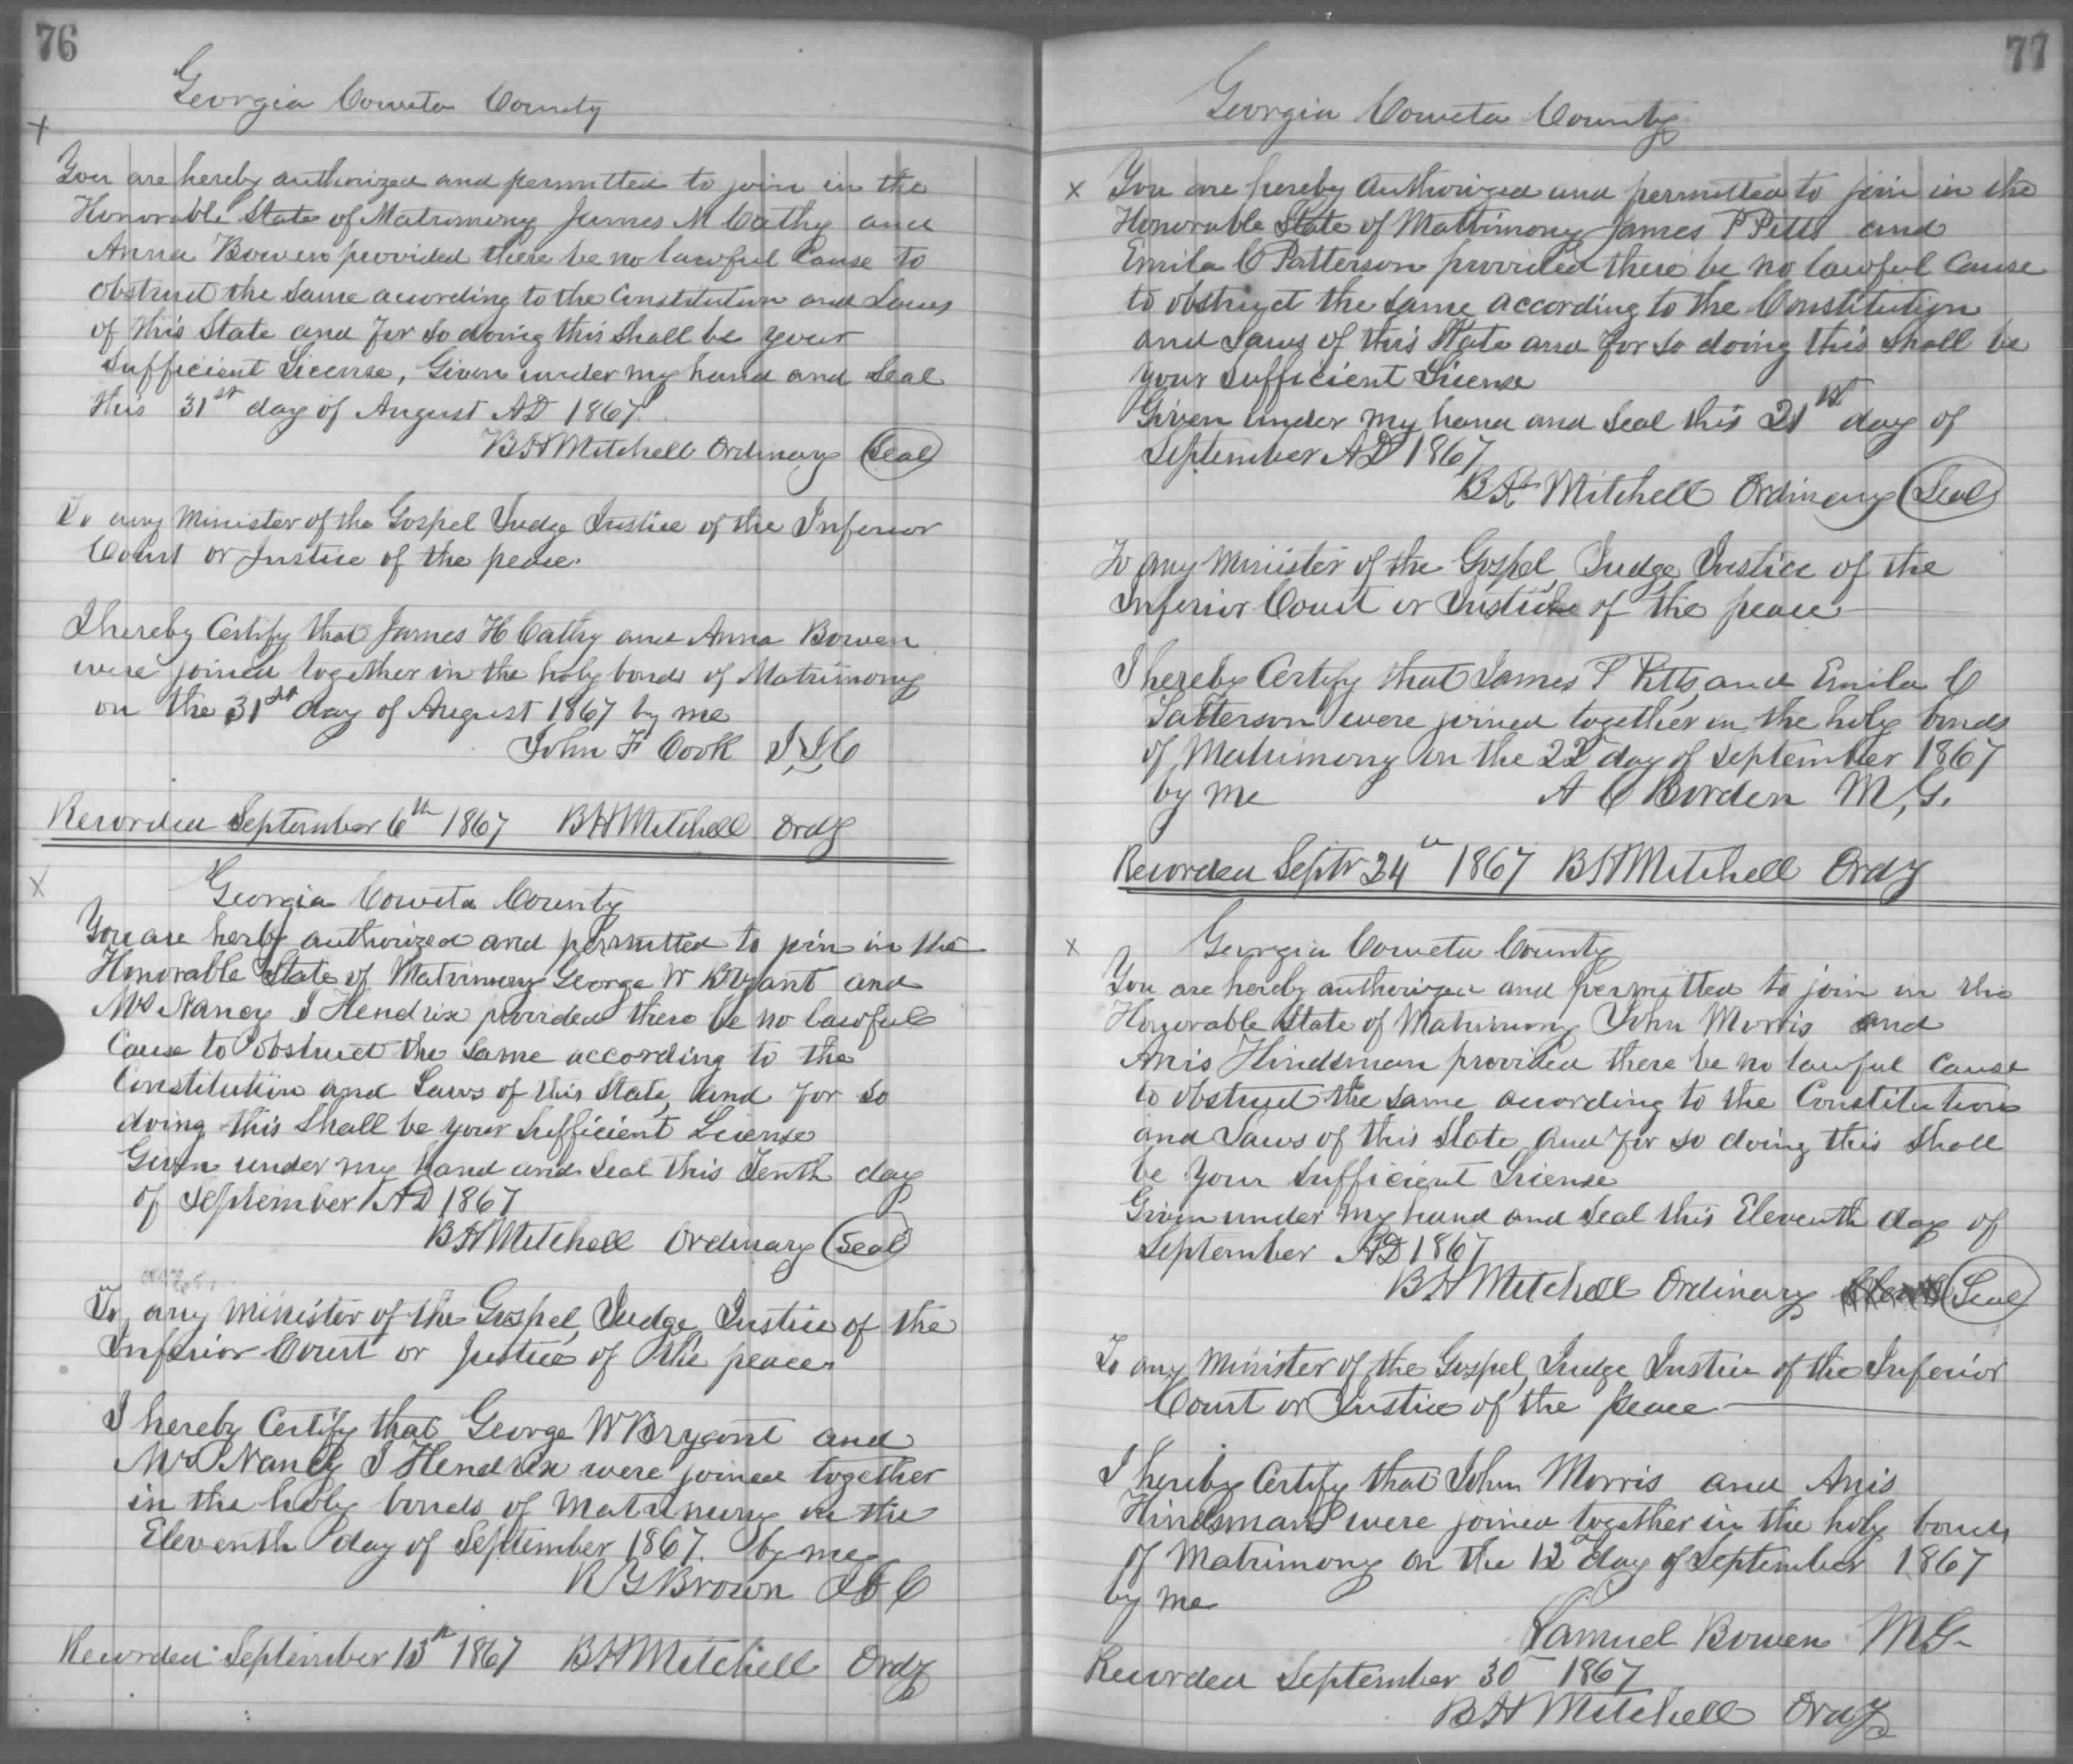 76
Georgia Coweta County
x
You are hereby authorized and permitted to join in the
Honorable State of Matrimony James M Cathy and
Anna Bowen provided there be no lawful Cause to
obstruct the same according to the Constitution and Laws
of this State and for so doing this shall be your
sufficient License, Given under my hand and Seal
this 31st day of August AD 1867.
B H Mitchell Ordinary (Seal)
To any Minister of the Gospel Judge Justice of the Inferior
Court or Justice of the peace.
I hereby Certify that James H Cathy and Anna Bowen
were joined together in the holy bonds of Matrimony
on the 31st day of August 1867 by me
John F Cook J.I.C
Recorded September 6th 1867 B H Mitchell Ordy
x
Georgia Coweta County
You are herby authorized and permitted to join in the
Honorable State of Matrimony George W Bryant and
Mrs Nancy J Hendrix provided there be no lawful
Cause to obstruct the same according to the
Constitution and Laws of this State, and for so
doing this shall be your sufficient License
Given under my hand and Seal this Tenth day
of September AD 1867
B H Mitchell Ordinary (Seal)
To any Minister of the Gospel, Judge, Justice of the
Inferior Court or Justice of the peace
I hereby Certify that George W Bryant and
Mrs Nancy J Hendrix were joined together
in the holy bonds of Matrimony on the
Eleventh day of September 1867. by me
R G Brown J I C
Recorded September 13th 1867 B H Mitchell Ordy
77
Georgia Coweta County
x You are hereby Authorized and permitted to join in the
Honorable State of Matrimony James P Pitts and
Emila C Patterson provided there be no lawful Cause
to obstruct the same according to the Constitution
and Laws of this State and for so doing this shall be
your sufficient License
Given under my hand and Seal this 21st day of
September AD 1867
B H Mitchell Ordinary (Seal)
To any Minister of the Gospel, Judge Justice of the
Inferior Court or Justice of the peace
I hereby Certify that James P Pitts and Emila C
Patterson were joined together in the holy bonds
of Matrimony on the 22 day of September 1867
by me A C Borden M, G.
Recorded Septr 24th 1867 B H Mitchell Ordy
x Georgia Coweta County
You are hereby authorized and permitted to join in the
Honorable State of Matrimony John Morris and
Anis Hindsman provided there be no lawful cause
to obstruct the same according to the Constitution
and Laws of this State and for so doing this shall
be your sufficient License
Given under my hand and Seal this Eleventh day of
September AD 1867
B H Mitchell Ordinary (Seal)
To any Minister of the Gospel, Judge Justice of the Inferior
Court or Justice of the peace
I hereby Certify that John Morris and Anis
Hindsman were joined together in the holy bonds
of Matrimony on the 12th day of September 1867
by me
Samuel Bowen M G
Recorded September 30 1867
B H Mitchell Ordy